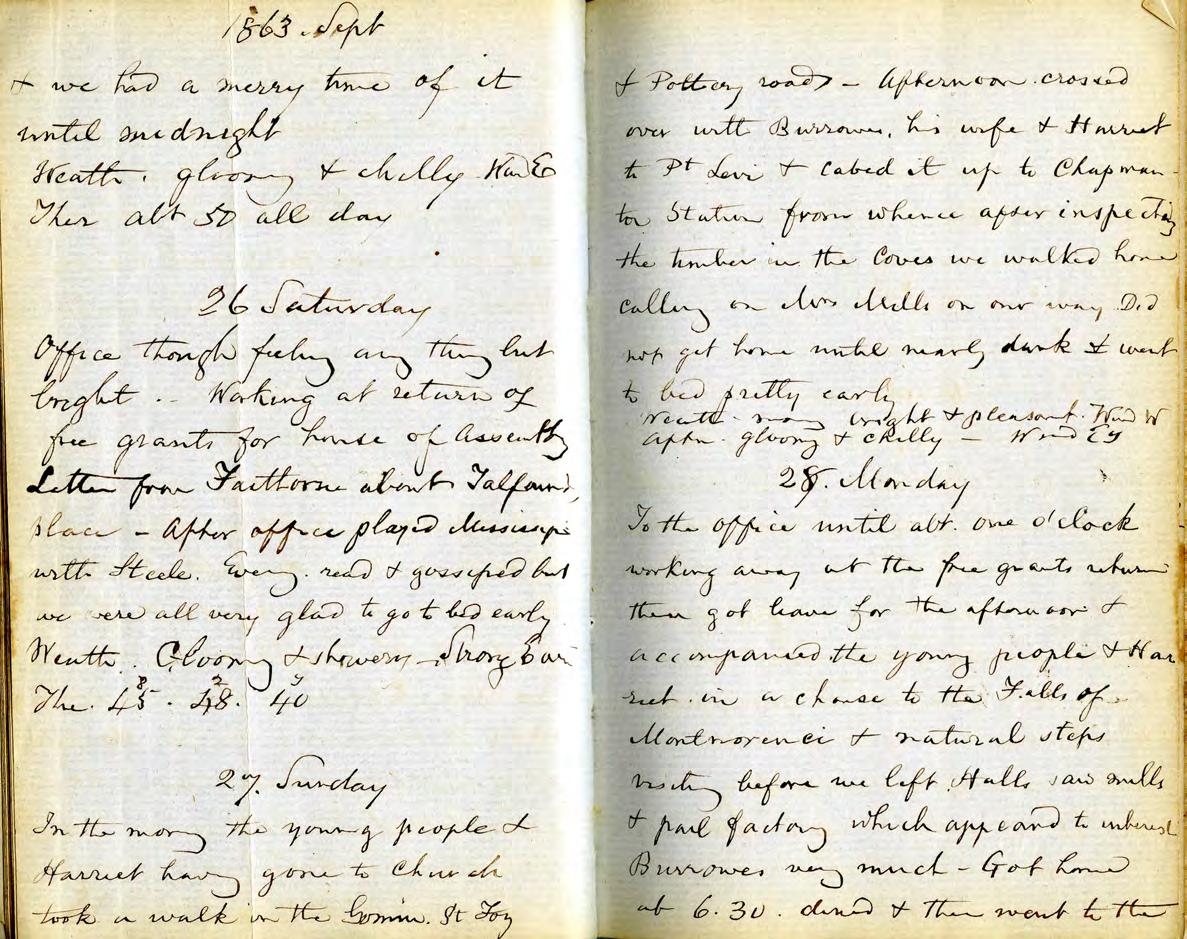 1863. Sept
& we had a merry time of it
until midnight
Weath. gloomy & chilly Wind E
Ther abt 50 all day
26 Saturday
Office though feeling any thing but
bright .- Working at return of
free grants for house of Assembly
Letter from Faithorne about Talfourd
place - After office played Mississipi
with Steele. Eveng. read & gossiped but
we were all very glad to go to bed early
Weath. Gloomy & showery - Strong E
The. 45 8. 48 2. 40 9
27. Sunday
In the morng the young people &
Harriet having gone to Church
took a walk in the Gomin. St Foy
& Pottery roads - Afternoon crossed
over with Burrowes, his wife & Harriet
to Pt Levi & cabed it up to Chapman
ton Station from whence after inspecting
the timber in the Coves we walked home
calling on Mrs Mills on our way Did
not get home until nearly dark & went
to bed pretty early
Weath. morng bright & pleasant. Wind W
Aftn. gloomy & chilly - Wind Ey
28. Monday
To the office until abt. one o'clock
working away at the free grants return
then got leave for the afternoon &
accompanied the young people & Har
riet in a chaise to the Falls of
Montmorenci & natural steps
visiting before we left Halls saw mills
& pail factory which appeard to interest
Burrowes very much - Got home
at 6.30. dined & then went to the